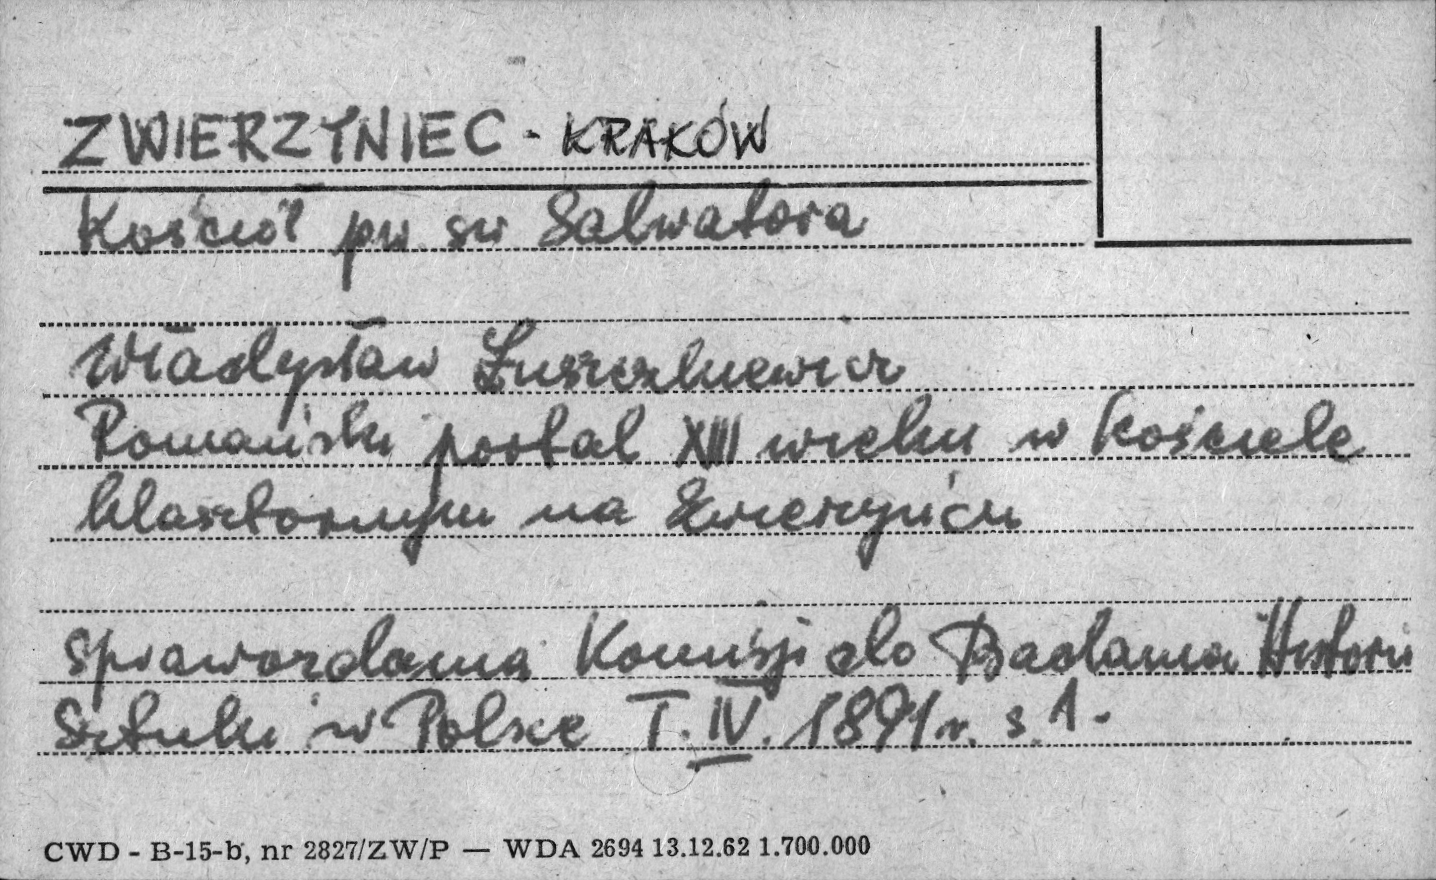 ZWIERZYNIEC - KRAKÓW
Kościół pw św Salwatora
Władysław Łuszczkiewicz
Romański portal XIII wieku w kościele
klasztornym na Zwierzyńcu
Sprawozdania Komisji do Badania Historii
Sztuki w Polsce T. IV. 1891 r. s. 1.
CWD - B-15-b, nr 2827/ZW/P — WDA 2694 13.12.62 1.700.000